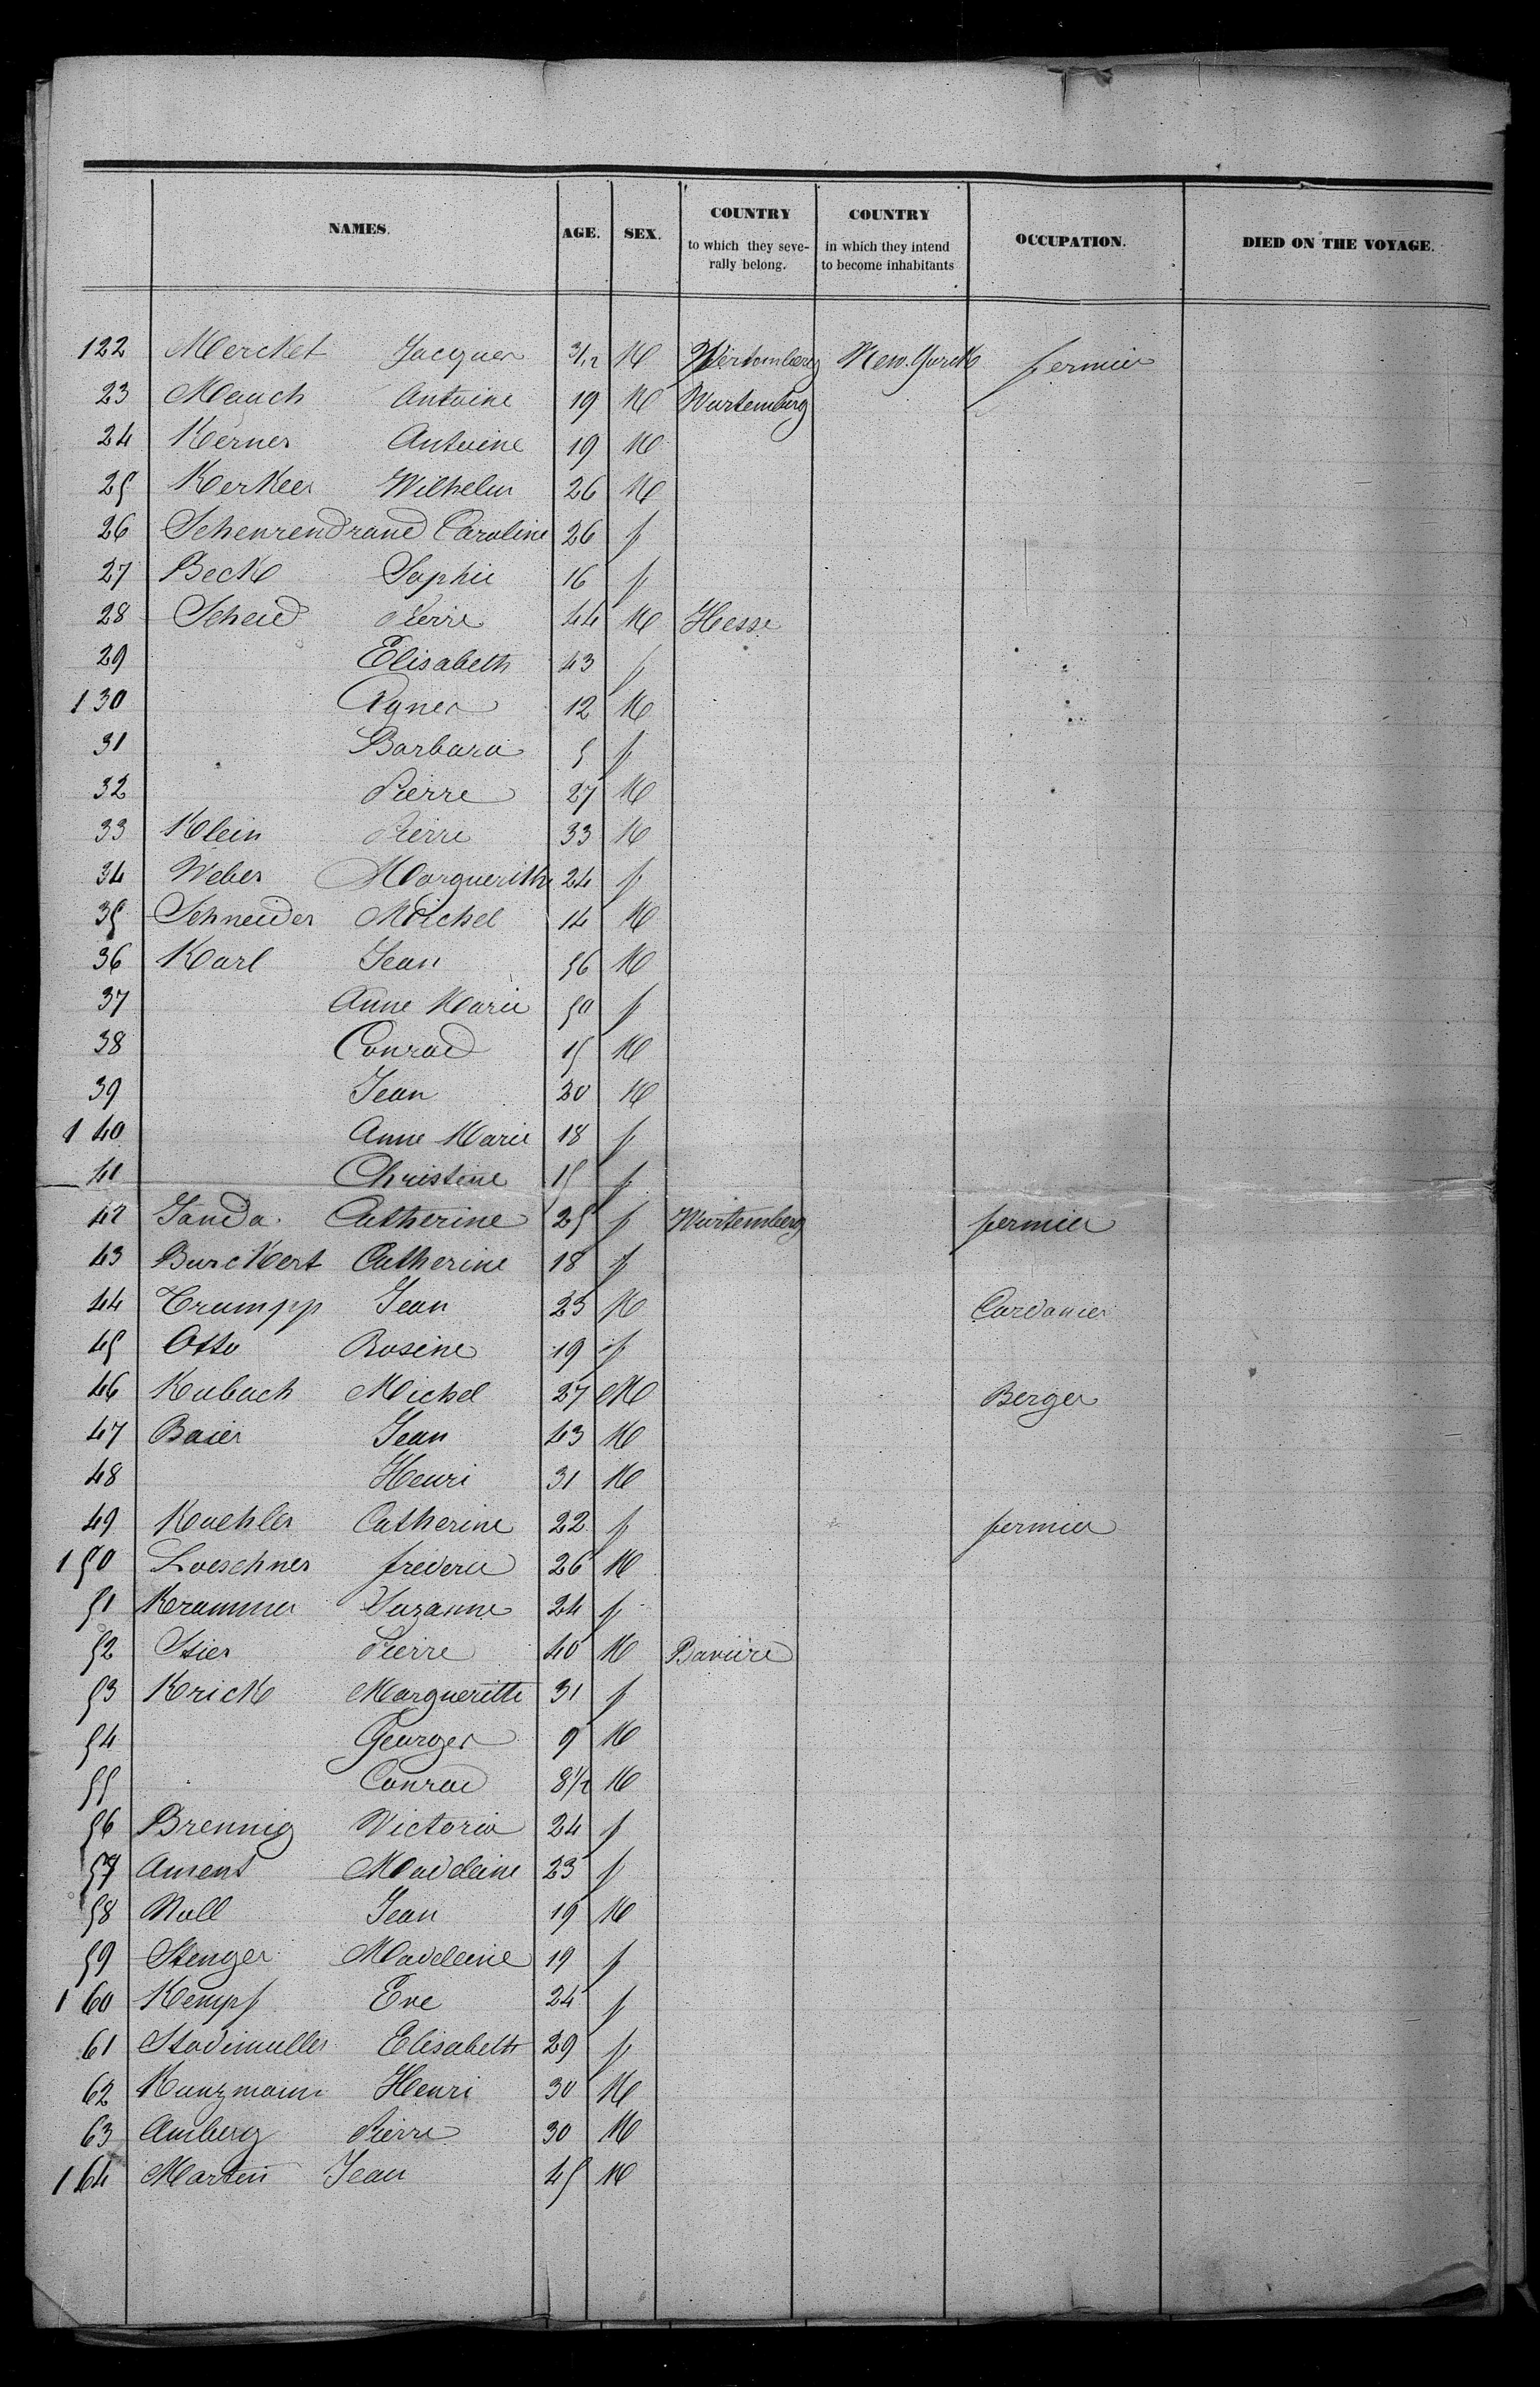 NAMES. AGE. SEX. COUNTRY to which they seve- rally belong. COUNTRY in which they intend to become inhabitants OCCUPATION. DIED ON THE VOYAGE.
122 Merckel Jacques 3/12 M Wirtemberg New-Yorck fermier
23 Mauch Antoine 19 M Wurtemberg
24 Kerner Antoine 19 M
25 Kerker Wilhelm 26 M
26 Scheurendrand Caroline 26 f
27 Beck Sophie 16 f
28 Scheid Pierre 44 M Hesse
29 Elisabeth 43 f
130 Agnes 12 M
31 Barbara 5 f
32 Pierre 27 M
33 Klein Pierre 33 M
34 Weber Marguerithe 24 f
35 Schneider Michel 14 M
36 Karl Jean 56 M
37 Anne Marie 50 f
38 Conrad 15 M
39 Jean 20 M
140 Anne Marie 18 f
41 Christine 15 f
42 Janda Catherine 25 f Wurtemberg fermier
43 Burckert Catherine 18 f
44 Trumpp Jean 23 M Cordanier
45 Otto Rosine 19 f
46 Kubach Michel 27 M Berger
47 Baier Jean 43 M
48 Henri 31 M
49 Koehler Catherine 22 f fermier
150 Loeschner frederic 26 M
51 Krammer Suzanne 24 f
52 Stier Pierre 40 M Baviere
53 Krick Margueritte 31 f
54 Georges 9 M
55 Conrad 8 1/2 M
56 Brennig Victoria 24 f
57 Ament Madeleine 23 f
58 Noll Jean 19 M
59 Stenger Madeleine 19 f
160 Kempf Eve 24 f
61 Stadimuller Elisabeth 29 f
62 Kunzmann Henri 30 M
63 Amberg Pierre 30 M
164 Martin Jean 45 M